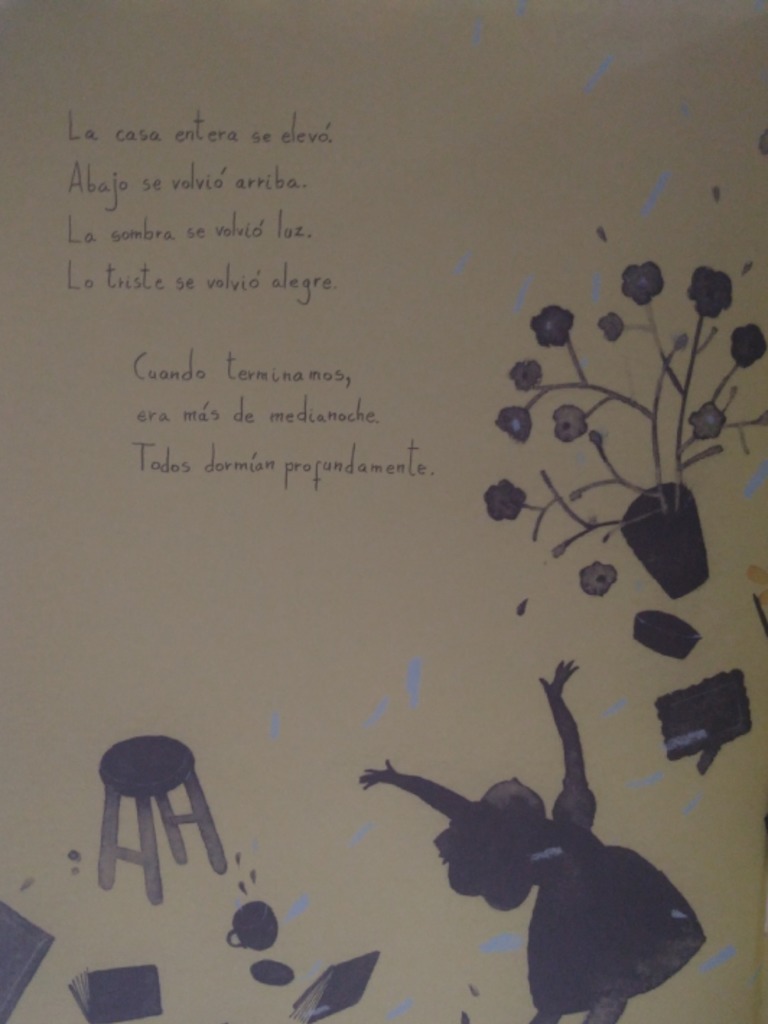 La casa entera se elevó.
Abajo se volvió arriba.
La sombra se volvió luz.
Lo triste se volvió alegre.
Cuando terminamos,
era más de medianoche.
Todos dormían profundamente.